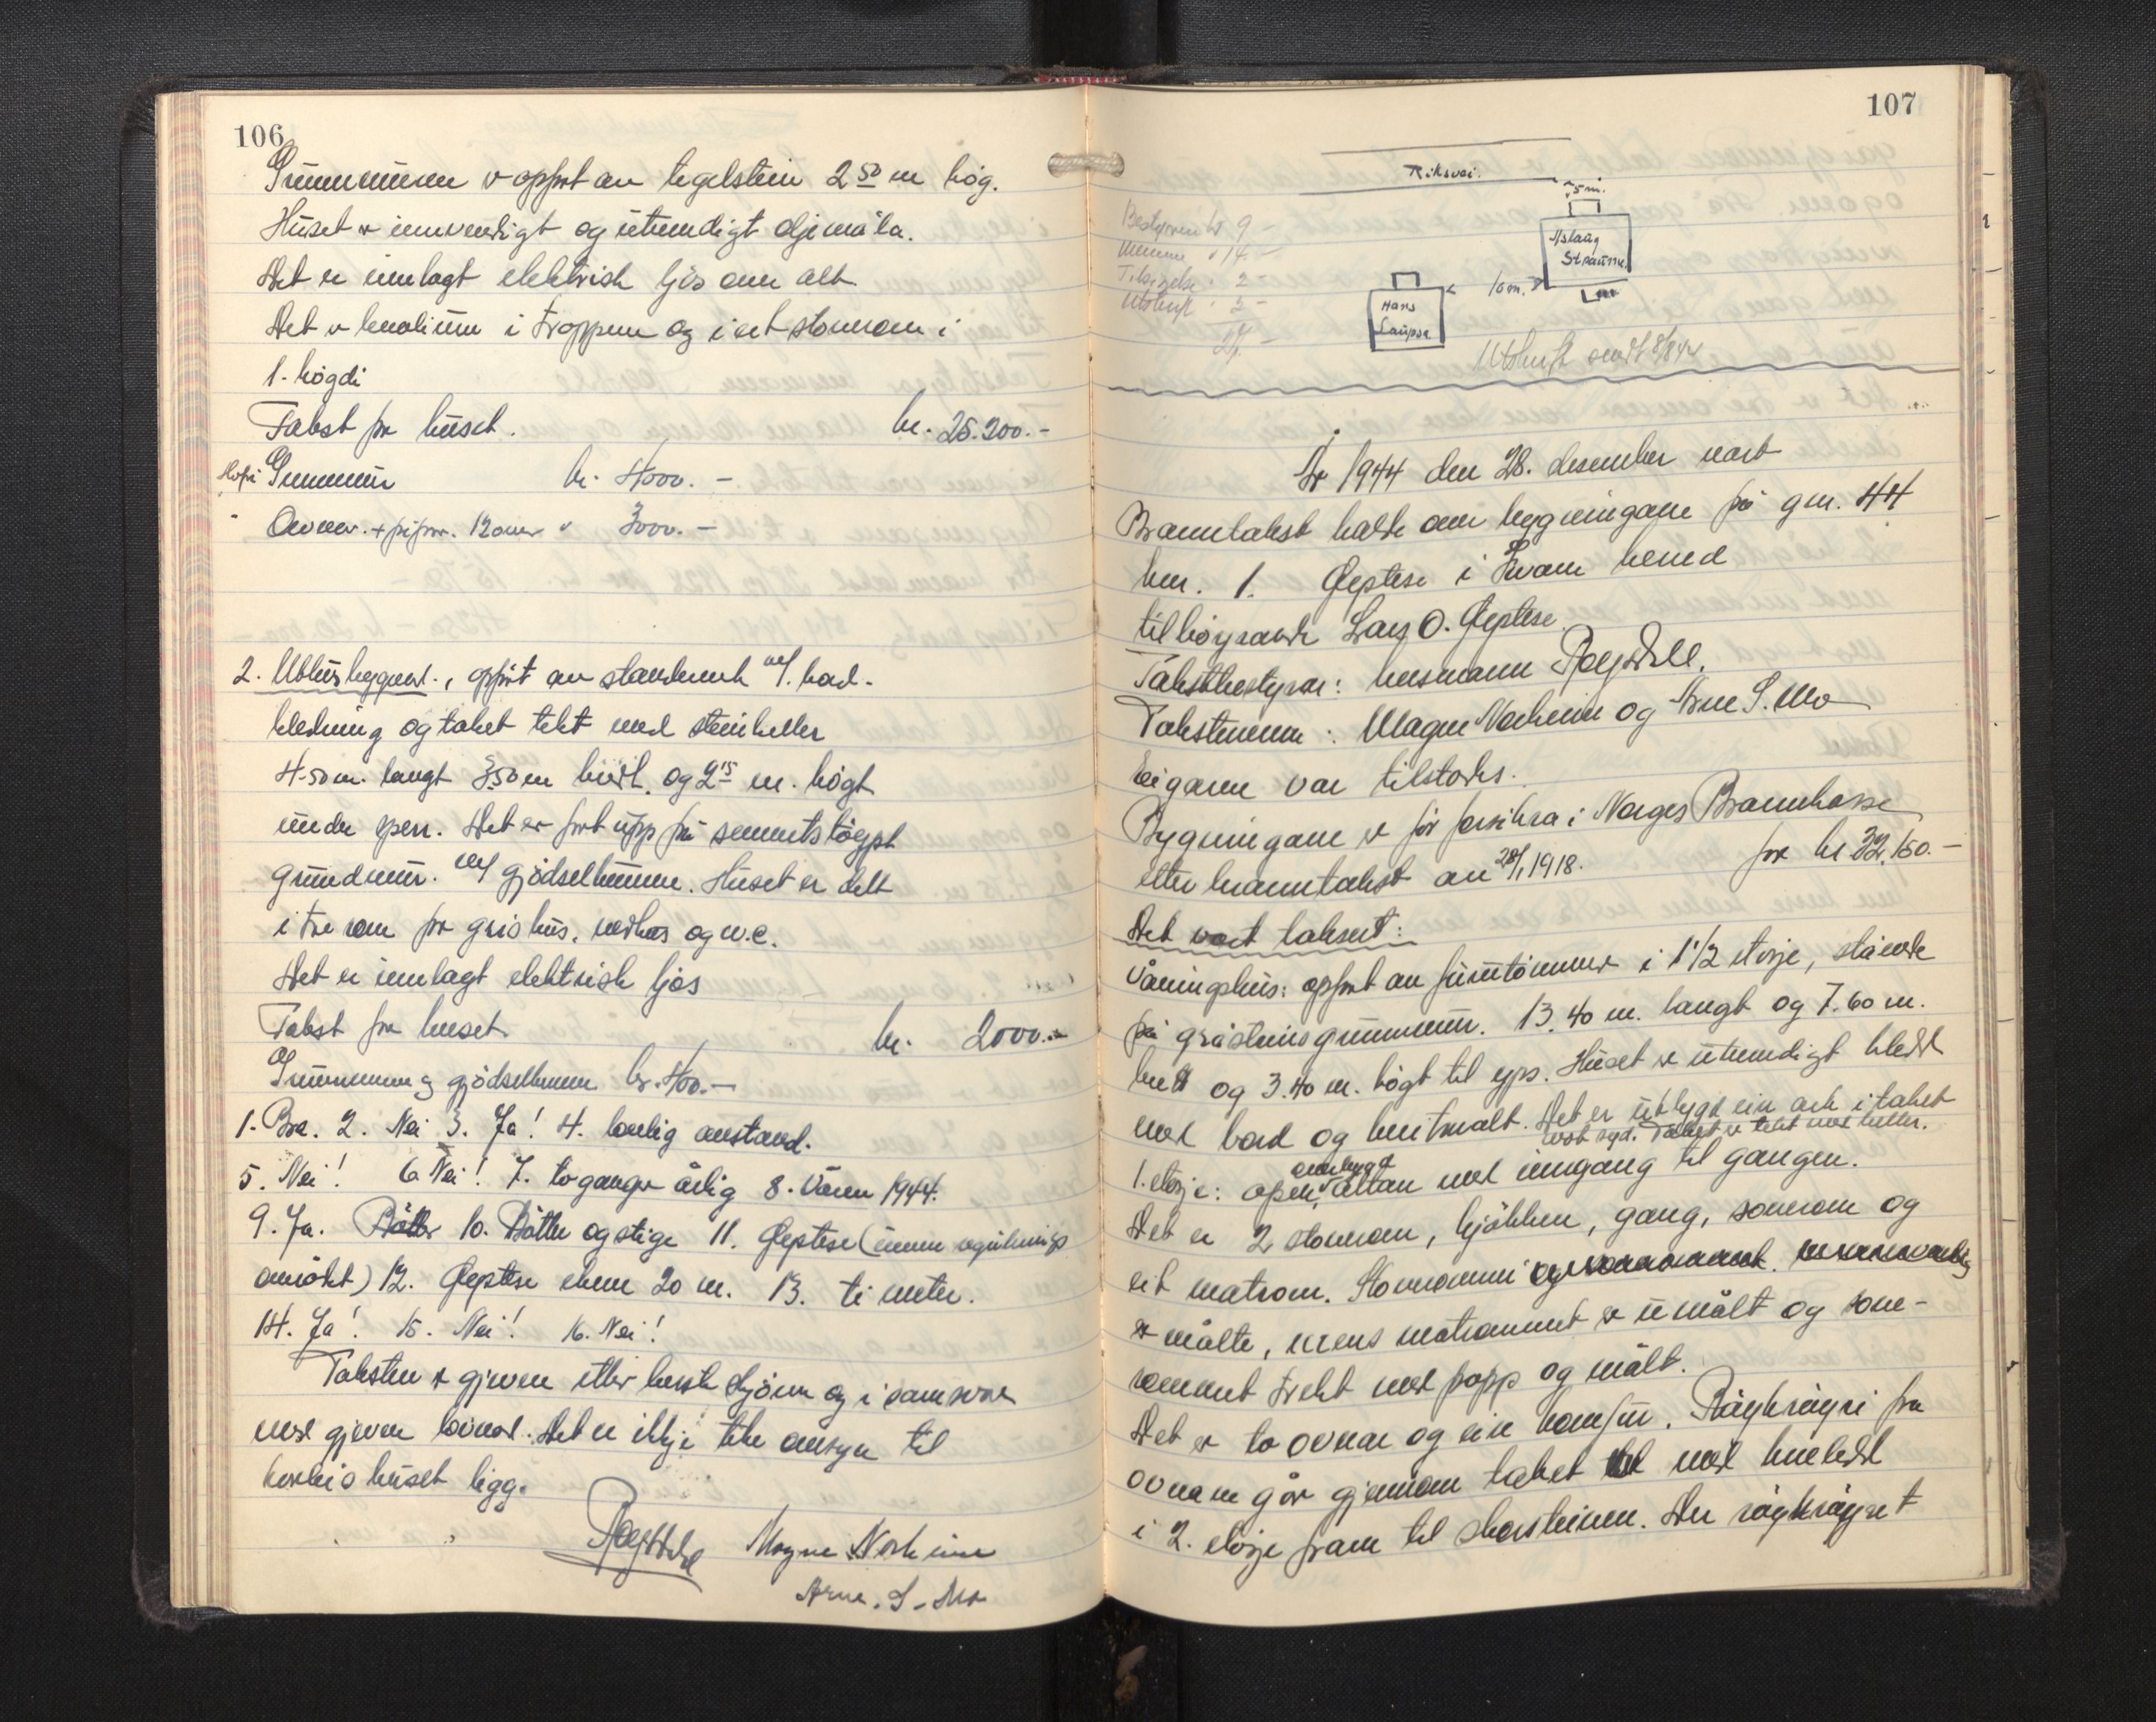 106
Grunnmuren er oppført av tegelstein 2.50 m høg.
Huset er innvendigt og utvendigt oljemåla.
Det er innlagt elektrisk ljos over alt
Det er linolium i troppen og i eit stoverom i
1. høgdi
Takst for huset. kr. 25.200.-
Herfrå Grunnmur kr. 4000.-
" Ovner + pipor. 12 omr " 3000.-
2. Uthusbygnad., oppført av standverk m/. bord-
kledning og taket tekt med steinheller
4.50 m. langt 3.50 m breidt. og 2.15 m. högt
under sperr. Det er ført upp på sementstöypt
grunnmur. m/ gjödselkumme. Huset er delt
i tre rom for grishus, vedhus og w.c.
Det er innlagt elektrisk ljos
Takst for huset kr. 2000.-
Grunnmur og gjödselkum kr. 400.-
1. Bra. 2. Nei 3. Ja! 4. lovlig avstand.
5. Nei! 6. Nei! 7. to ganger årlig 8. Våren 1944.
9. Ja. 10. Bötter og stige 11. Öystese (innen regulerings
området) 12. Öystese elven 20 m. 13. ti meter.
14. Ja! 15. Nei! 16. Nei!
Taksten er gjeven etter beste skjönn og i samsvar
med gjeven lovnad. Det er ikkje teke omsyn til
korleis huset ligg.
Magne Norheim
Arne. S. Mo
107
Riksvei.
5 m.
Aslaug
Straume
10 m.
Hans
Laupsa
Bestyreren kr 9 -
Mennene " 14 -
Tilsigelse " 2 -
Utskrift " 2 -
27.-
Utskrift sendt 8/8 44
År 1944 den 28. desember vart
Branntakst halde over bygningane på gnr. 44
bnr. 1. Öystese i Kvam herad
tilhöyrande Lars O. Öystese.
Takstbestyrar: lensmann
Takstmenn: Magne Norheim og Arne S. Mo
Eigaren var tilstades.
Bygningane er för forsikra i Norges Brannkasse
etter branntakst av 28/1 1918. for kr. 32.150.-
Det vart taksert:
Våningshus: oppført av furutömmer i 1 1/2 etasje, ståande
på gråsteinsgrunnmur. 13.40 m. langt og 7.60 m.
breitt og 3.40 m. högt til gips. Huset er utvendigt kledd
med bord og kvitmalt. Det er utbygt ein ark i taket
mot syd. Taket er tekt med heller.
1. etasje: open, overbygd altan med inngang til gangen.
Det er 2 stoverom, kjökken, gang, soverom og
eit matrom. Stoverommi
er målte, mens matrommet er umålt og sove-
rommet trekt med papp og målt.
Det er to ovnar og ein komfur. Röykröyri fra
ovnane går gjennom taket med kneledd
i 2. etasje fram til skorsteinen. Der röykröyret